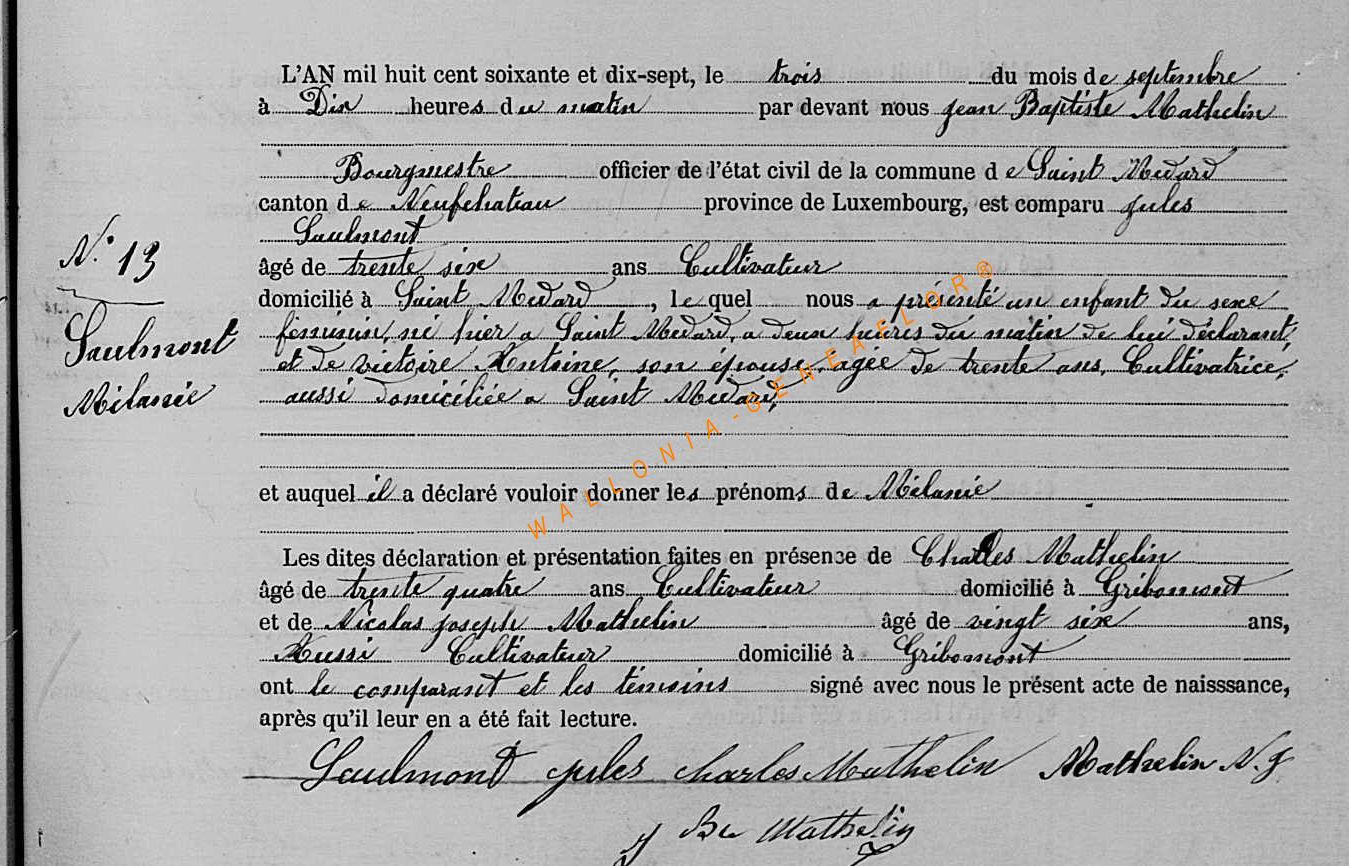 L'AN mil huit cent soixante et dix-sept, le trois du mois de septembre
à Dix heures du matin par devant nous jean Baptiste Mathelin
Bourgmestre officier de l'état civil de la commune de Saint Médard
canton de Neufchateau province de Luxembourg, est comparu jules
Saulmont
N° 13
âgé de trente six ans Cultivateur
domicilié à Saint Médard, lequel nous a présenté un enfant du sexe
féminin, né hier a Saint Médard, a deux heures du matin de lui déclarant,
Saulmont
et de victoire Antoine, son épouse, agée de trente ans, Cultivatrice,
Mélanie
aussi domiciliée a Saint Médard,
WALLONIA-GENEAELOR®
et auquel il a déclaré vouloir donner les prénoms de Mélanie
Les dites déclaration et présentation faites en présence de Charles Mathelin
âgé de trente quatre ans Cultivateur domicilié à Gribomont
et de Nicolas joseph Mathelin âgé de vingt six ans,
Aussi Cultivateur domicilié à Gribomont
ont le comparant et les témoins signé avec nous le présent acte de naisssance,
après qu'il leur en a été fait lecture.
Saulmont jules charles Mathelin Mathelin N. j
j Bte Mathelin